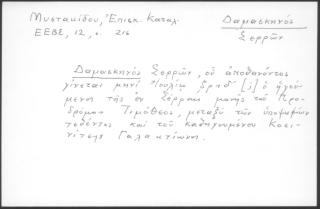 Μυστακίδου, Ἐπισκ. Καταλ.
ΕΕΒΣ, 12, σ. 216
Δαμασκηνός
Σερρῶν
Δαμασκηνός Σερρῶν, οὗ ἀποθανόντος
γίνεται μηνὶ Ἰουλίῳ [;] ὁ ἡγού-
μενος τῆς ἐν Σέρραις μονῆς τοῦ Προ-
δρόμου Τιμόθεος, μεταξὺ τῶν ὑποψηφίων
τεθέντος καὶ τοῦ καθηγουμένου Κοσι-
νίτσης Γαλακτίωνος.